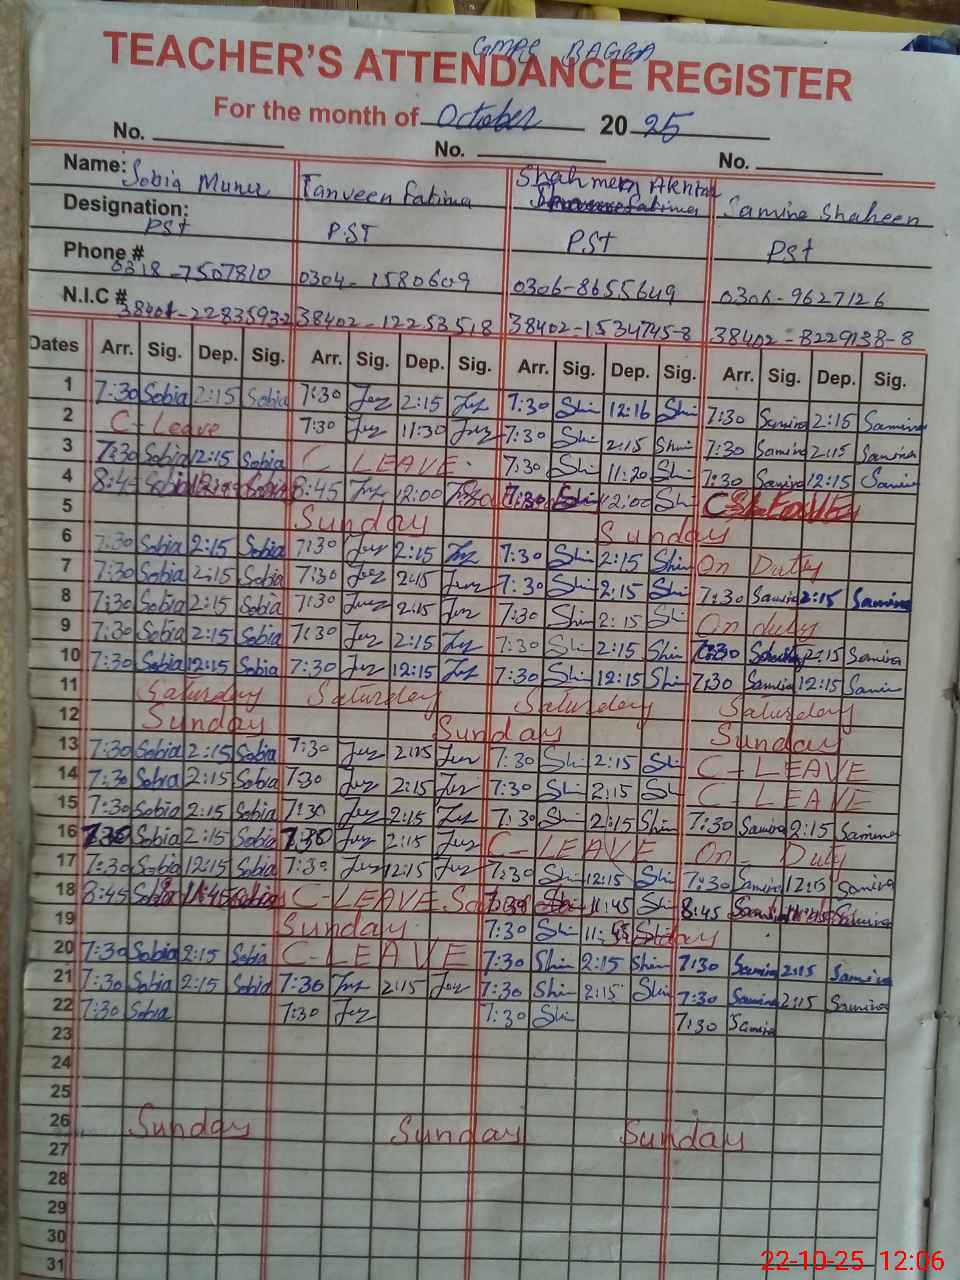 GMPS BAGGA
TEACHER'S ATTENDANCE REGISTER
For the month of October 2025
No. No. No.
Name: Sobia Munir Tanveen Fatima Shahmeen Akhtar Samina Shaheen
Designation: PST PST PST PST
Phone # 0318-7507810 0304-1580609 0306-8655649 0306-9627126
N.I.C # 38401-22835932 38402-12253518 38402-1534745-8 38402-8229138-8
Dates Arr. Sig. Dep. Sig. Arr. Sig. Dep. Sig. Arr. Sig. Dep. Sig. Arr. Sig. Dep. Sig.
1 7:30 Sobia 2:15 Sobia 7:30 2:15 7:30 Shi 12:16 Shi 7:30 Samina 2:15 Samina
2 C-Leave 7:30 11:30 7:30 Shi 2:15 Shi 7:30 Samina 2:15 Samina
3 7:30 Sobia 12:15 Sobia C LEAVE 7:30 Shi 11:20 Shi 7:30 Samina 12:15 Samina
4 8:45 Sobia 8:45 12:00 7:30 Shi 12:00 Shi C
5 Sunday Sunday
6 7:30 Sobia 2:15 Sobia 7:30 2:15 7:30 Shi 2:15 Shi On Duty
7 7:30 Sobia 2:15 Sobia 7:30 2:15 7:30 Shi 2:15 Shi 7:30 Samina 2:15 Samina
8 7:30 Sobia 2:15 Sobia 7:30 2:15 7:30 Shi 2:15 Shi On duty
9 7:30 Sobia 2:15 Sobia 7:30 2:15 7:30 Shi 2:15 Shi 7:30 2:15 Samina
10 7:30 Sobia 12:15 Sobia 7:30 12:15 7:30 Shi 12:15 Shi 7:30 Samina 12:15 Samina
11 Saturday Saturday Saturday Saturday
12 Sunday Sunday Sunday
13 7:30 Sobia 2:15 Sobia 7:30 2:15 7:30 Shi 2:15 Shi C-LEAVE
14 7:30 Sobia 2:15 Sobia 7:30 2:15 7:30 Shi 2:15 Shi C-LEAVE
15 7:30 Sobia 2:15 Sobia 7:30 2:15 7:30 Shi 2:15 Shi 7:30 Samina 2:15 Samina
16 7:30 Sobia 2:15 Sobia 7:30 2:15 C-LEAVE On-Duty
17 7:30 Sobia 12:15 Sobia 7:30 12:15 7:30 Shi 12:15 Shi 7:30 Samina 12:15 Samina
18 8:45 Sobia 11:45 Sobia C-LEAVE 7:30 Shi 11:45 Shi 8:45 Samina
19 Sunday 7:30 Shi 11:45
20 7:30 Sobia 2:15 Sobia C-LEAVE 7:30 Shi 2:15 Shi 7:30 Samina 2:15 Samina
21 7:30 Sobia 2:15 Sobia 7:30 2:15 7:30 Shi 2:15 Shi 7:30 Samina 2:15 Samina
22 7:30 Sobia 7:30 7:30 Shi 7:30 Samina
23
24
25
26 Sunday Sunday Sunday
27
28
29
30
31
22-10-25 12:06